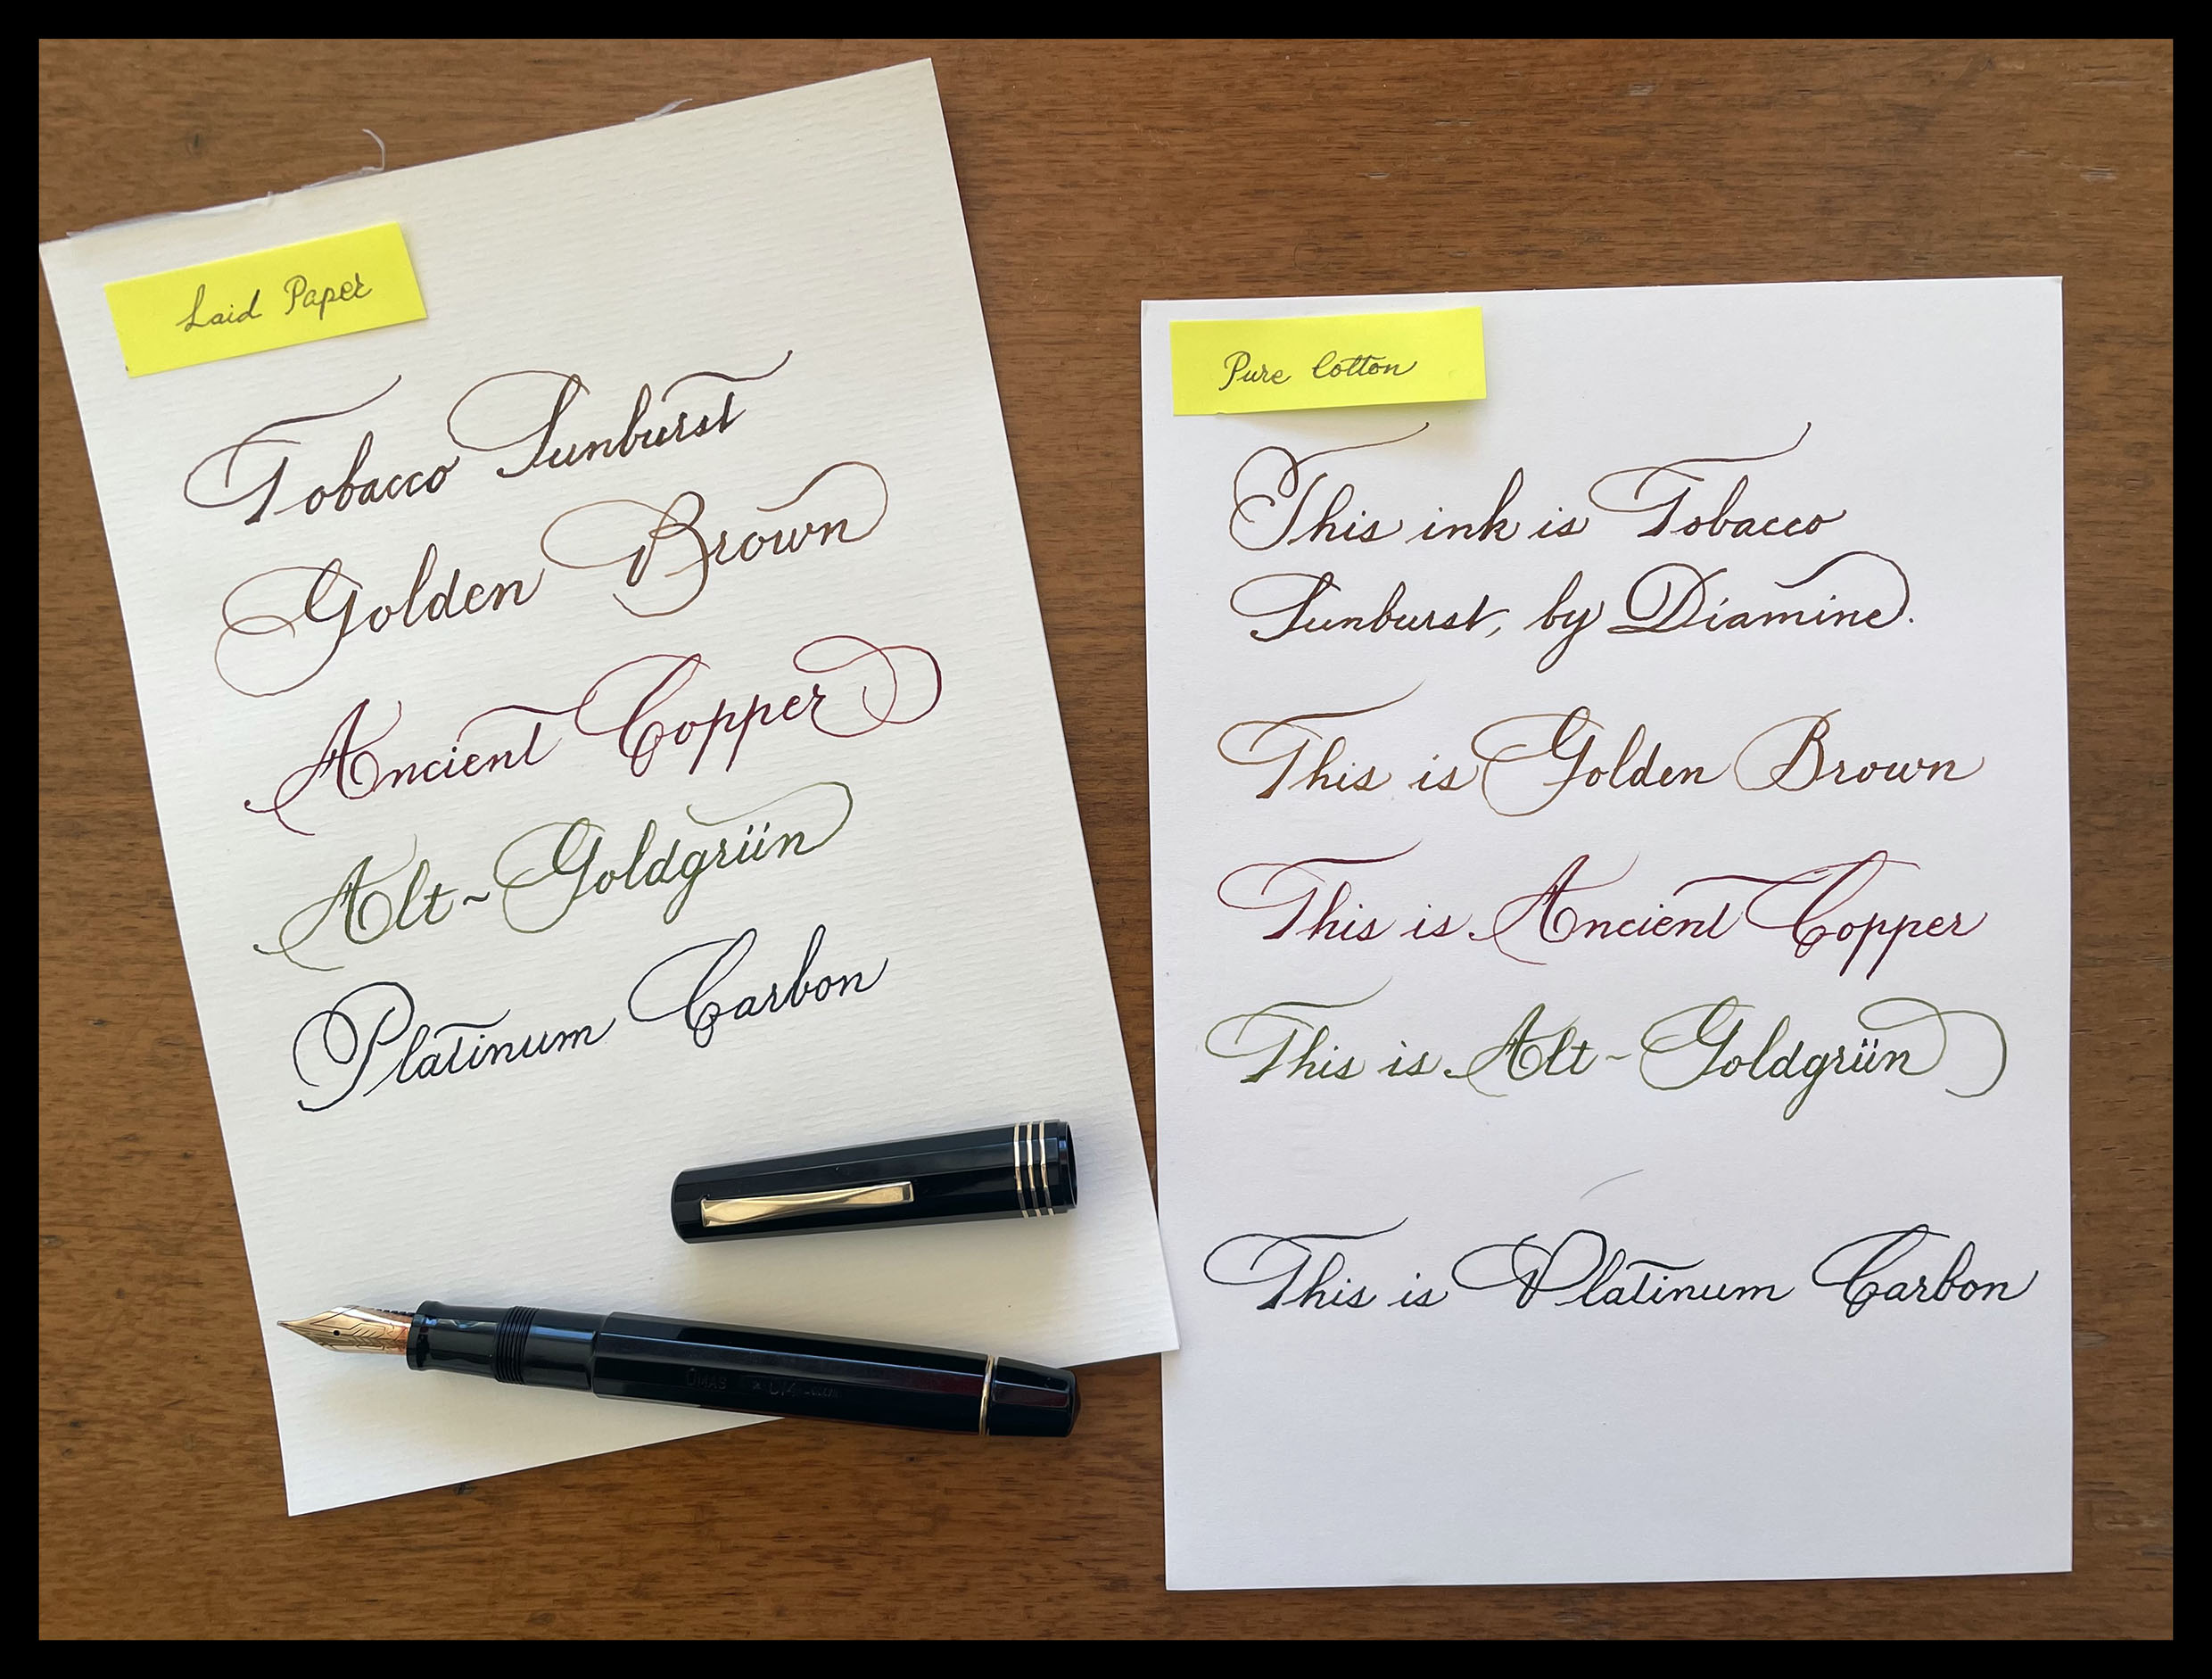 Laid Paper
Tobacco Sunburst
Golden Brown
Ancient Copper
Alt~Goldgrün
Platinum Carbon
OMAS
Pure Cotton
This ink is Tobacco
Sunburst, by Diamine.
This is Golden Brown
This is Ancient Copper
This is Alt~Goldgrün
This is Platinum Carbon